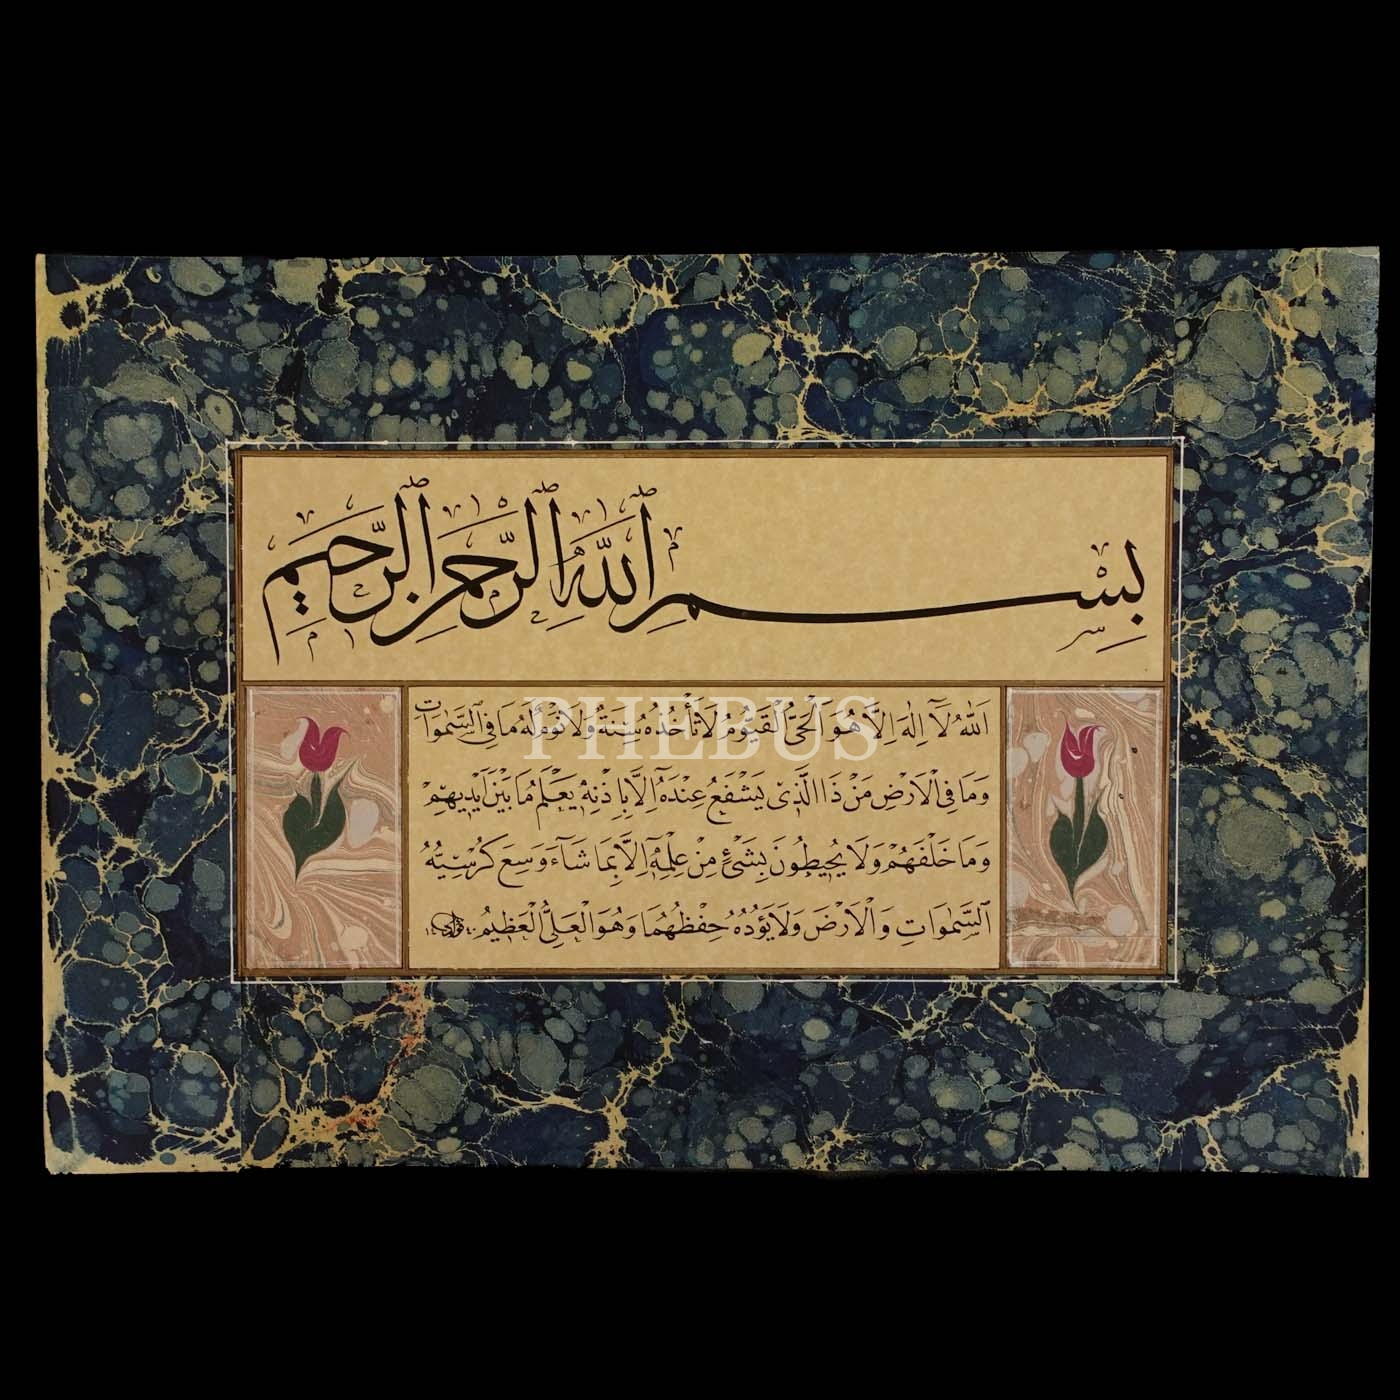 بِسْمِ اللّٰهِ الرَّحْمٰنِ الرَّحِيمِ
PHEBUS
اَللّٰهُ لَآ اِلٰهَ اِلَّا هُوَ الْحَىُّ الْقَيُّومُ لَا تَأْخُذُهُ سِنَةٌ وَلَا نَوْمٌ لَهُ مَا فِى السَّمٰوَاتِ
وَمَا فِى الْاَرْضِ مَنْ ذَا الَّذٖى يَشْفَعُ عِنْدَهُٓ اِلَّا بِاِذْنِهٖ يَعْلَمُ مَا بَيْنَ اَيْدٖيهِمْ
وَمَا خَلْفَهُمْ وَلَا يُحٖيطُونَ بِشَىْءٍ مِنْ عِلْمِهٖٓ اِلَّا بِمَا شَآءَ وَسِعَ كُرْسِيُّهُ
السَّمٰوَاتِ وَالْاَرْضَ وَلَا يَؤُدُهُ حِفْظُهُمَا وَهُوَ الْعَلِىُّ الْعَظٖيمُ